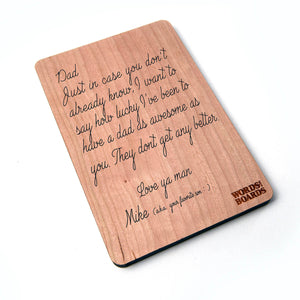 Dad
Just in case you don't
already know, I want to
say how lucky I've been to
have a dad as awesome as
you. They dont get any better.
Love ya man
Mike (aka. your favorite son :-)
WORDS!
BOARDS